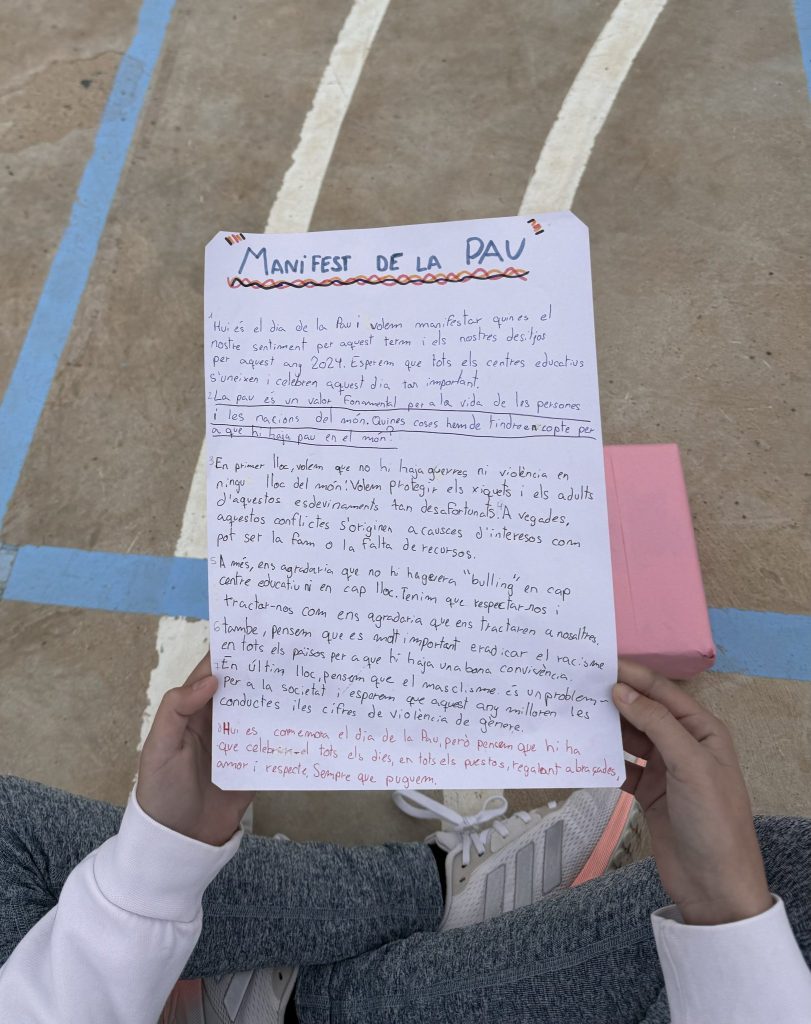 MANIFEST DE LA PAU
1 Hui és el dia de la Pau i volem manifestar quin es el
nostre sentiment per aquest term i els nostres desitjos
per aquest any 2024. Esperem que tots els centres educatius
s'uneixen i celebren aquest dia tan important.
2 La pau es un valor fonamental per a la vida de les persones
i les nacions del món. Quines coses hem de tindre en copte per
a que hi haja pau en el món?
3 En primer lloc, volem que no hi haja guerres ni violència en
ningu lloc del món! Volem protegir els xiquets i els adults
d'aquestos esdevinaments tan desafortunats. 4 A vegades,
aquestos conflictes s'originen a causces d'interesos com
pot ser la fam o la falta de recursos.
5 A més, ens agradaria que no hi haguera "bulling" en cap
centre educatiu ni en cap lloc. Tenim que respectar-nos i
tractar-nos com ens agradaria que ens tractaren a nosaltres.
6 també, pensem que es molt important eradicar el racisme
en tots els països per a que hi haja una bona convivència.
7 En últim lloc, pensem que el masclisme és un problem-
per a la societat i esperem que aquest any milloren les
conductes i les cifres de violència de gènere.
8 Hui es comemora el dia de la Pau, però pensem que hi ha
que celebrar-el tots els dies, en tots els puestos, regalant abraçades,
amor i respecte. Sempre que puguem.